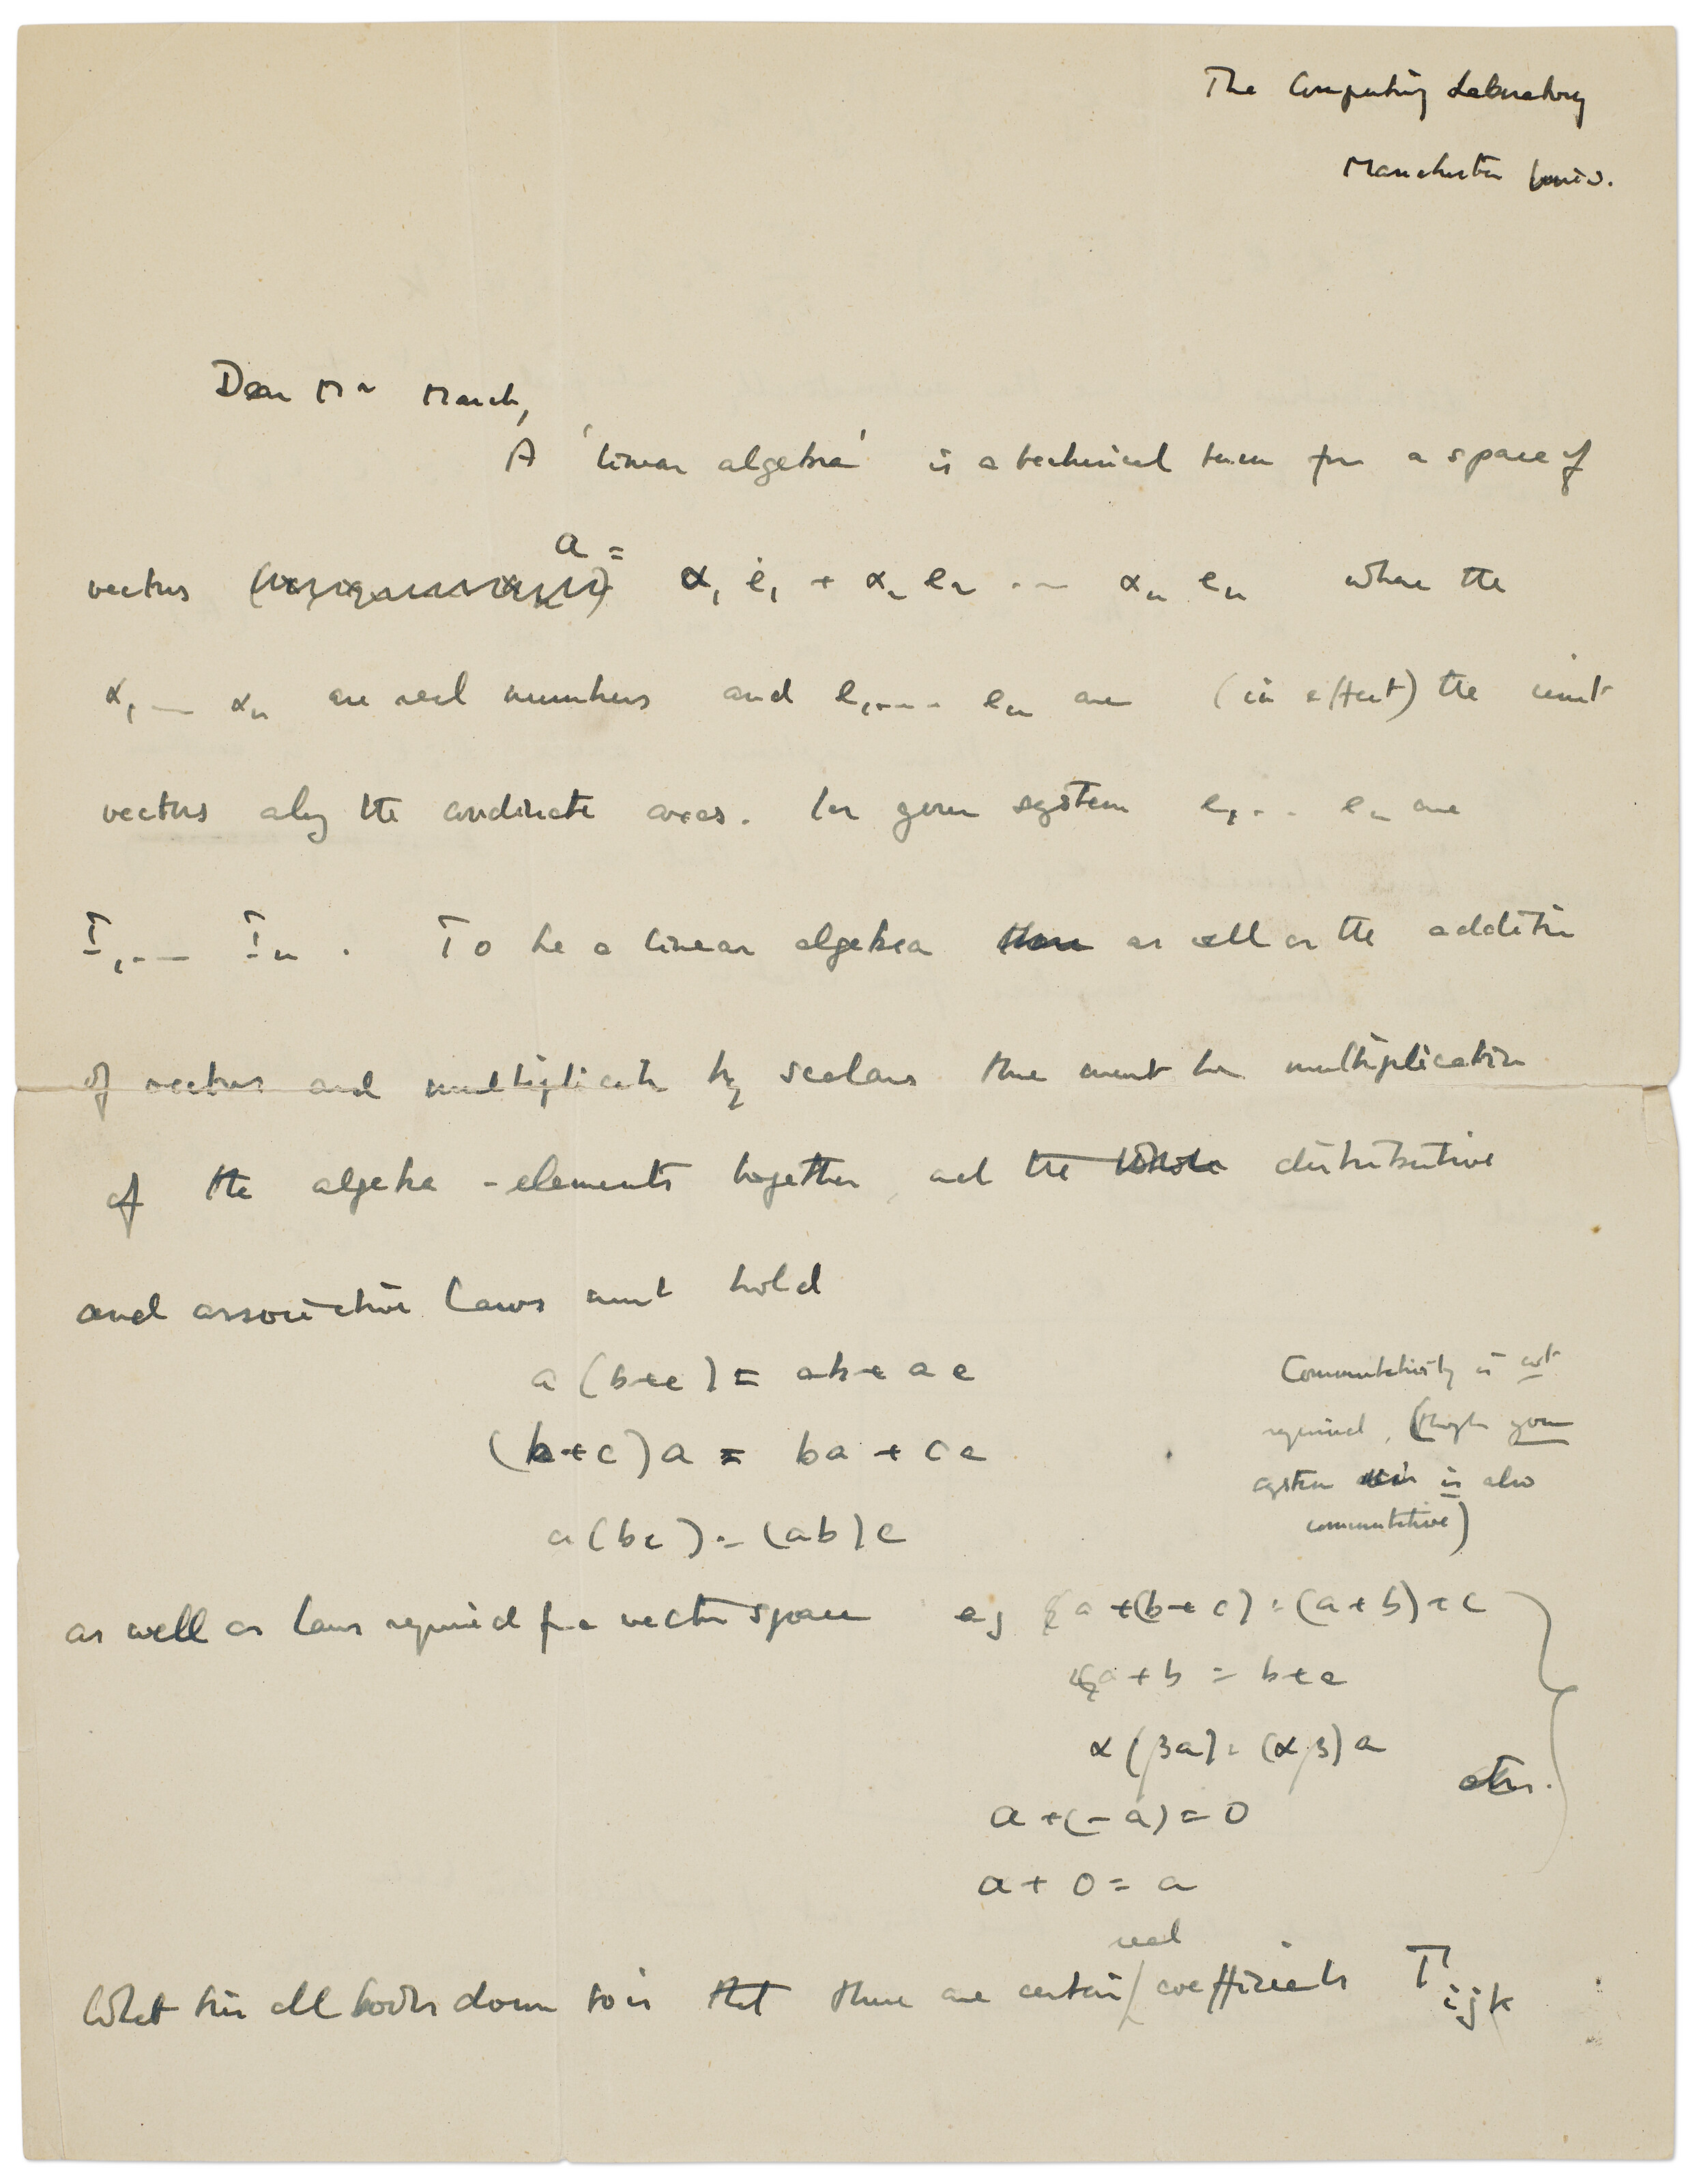 The Computing Laboratory
Manchester Univ.
Dear Mr March,
A 'linear algebra' is a technical term for a space of
vectors a = α₁ e₁ + α₂ e₂ ... αₙ eₙ where the
α₁ ... αₙ are real numbers and e₁ ... eₙ are (in effect) the unit
vectors along the coordinate axes. In your system e₁ ... eₙ are
I₁ ... Iₙ . To be a linear algebra there as well as the addition
of vectors and multiplication by scalars there must be multiplication
of the algebra-elements together, and the whole distributive
and associative laws must hold
a(b+c) = ab+ac
(b+c)a = ba+ca
a(bc) = (ab)c
Commutativity is not
required, (though your
system is also
commutative)
as well as laws required for a vector space eg a+(b+c) = (a+b)+c
a+b = b+a
α(βa) = (αβ)a
etc.
a+(-a) = 0
a+0 = a
What this all boils down to is that there are certain real coefficients Tijk